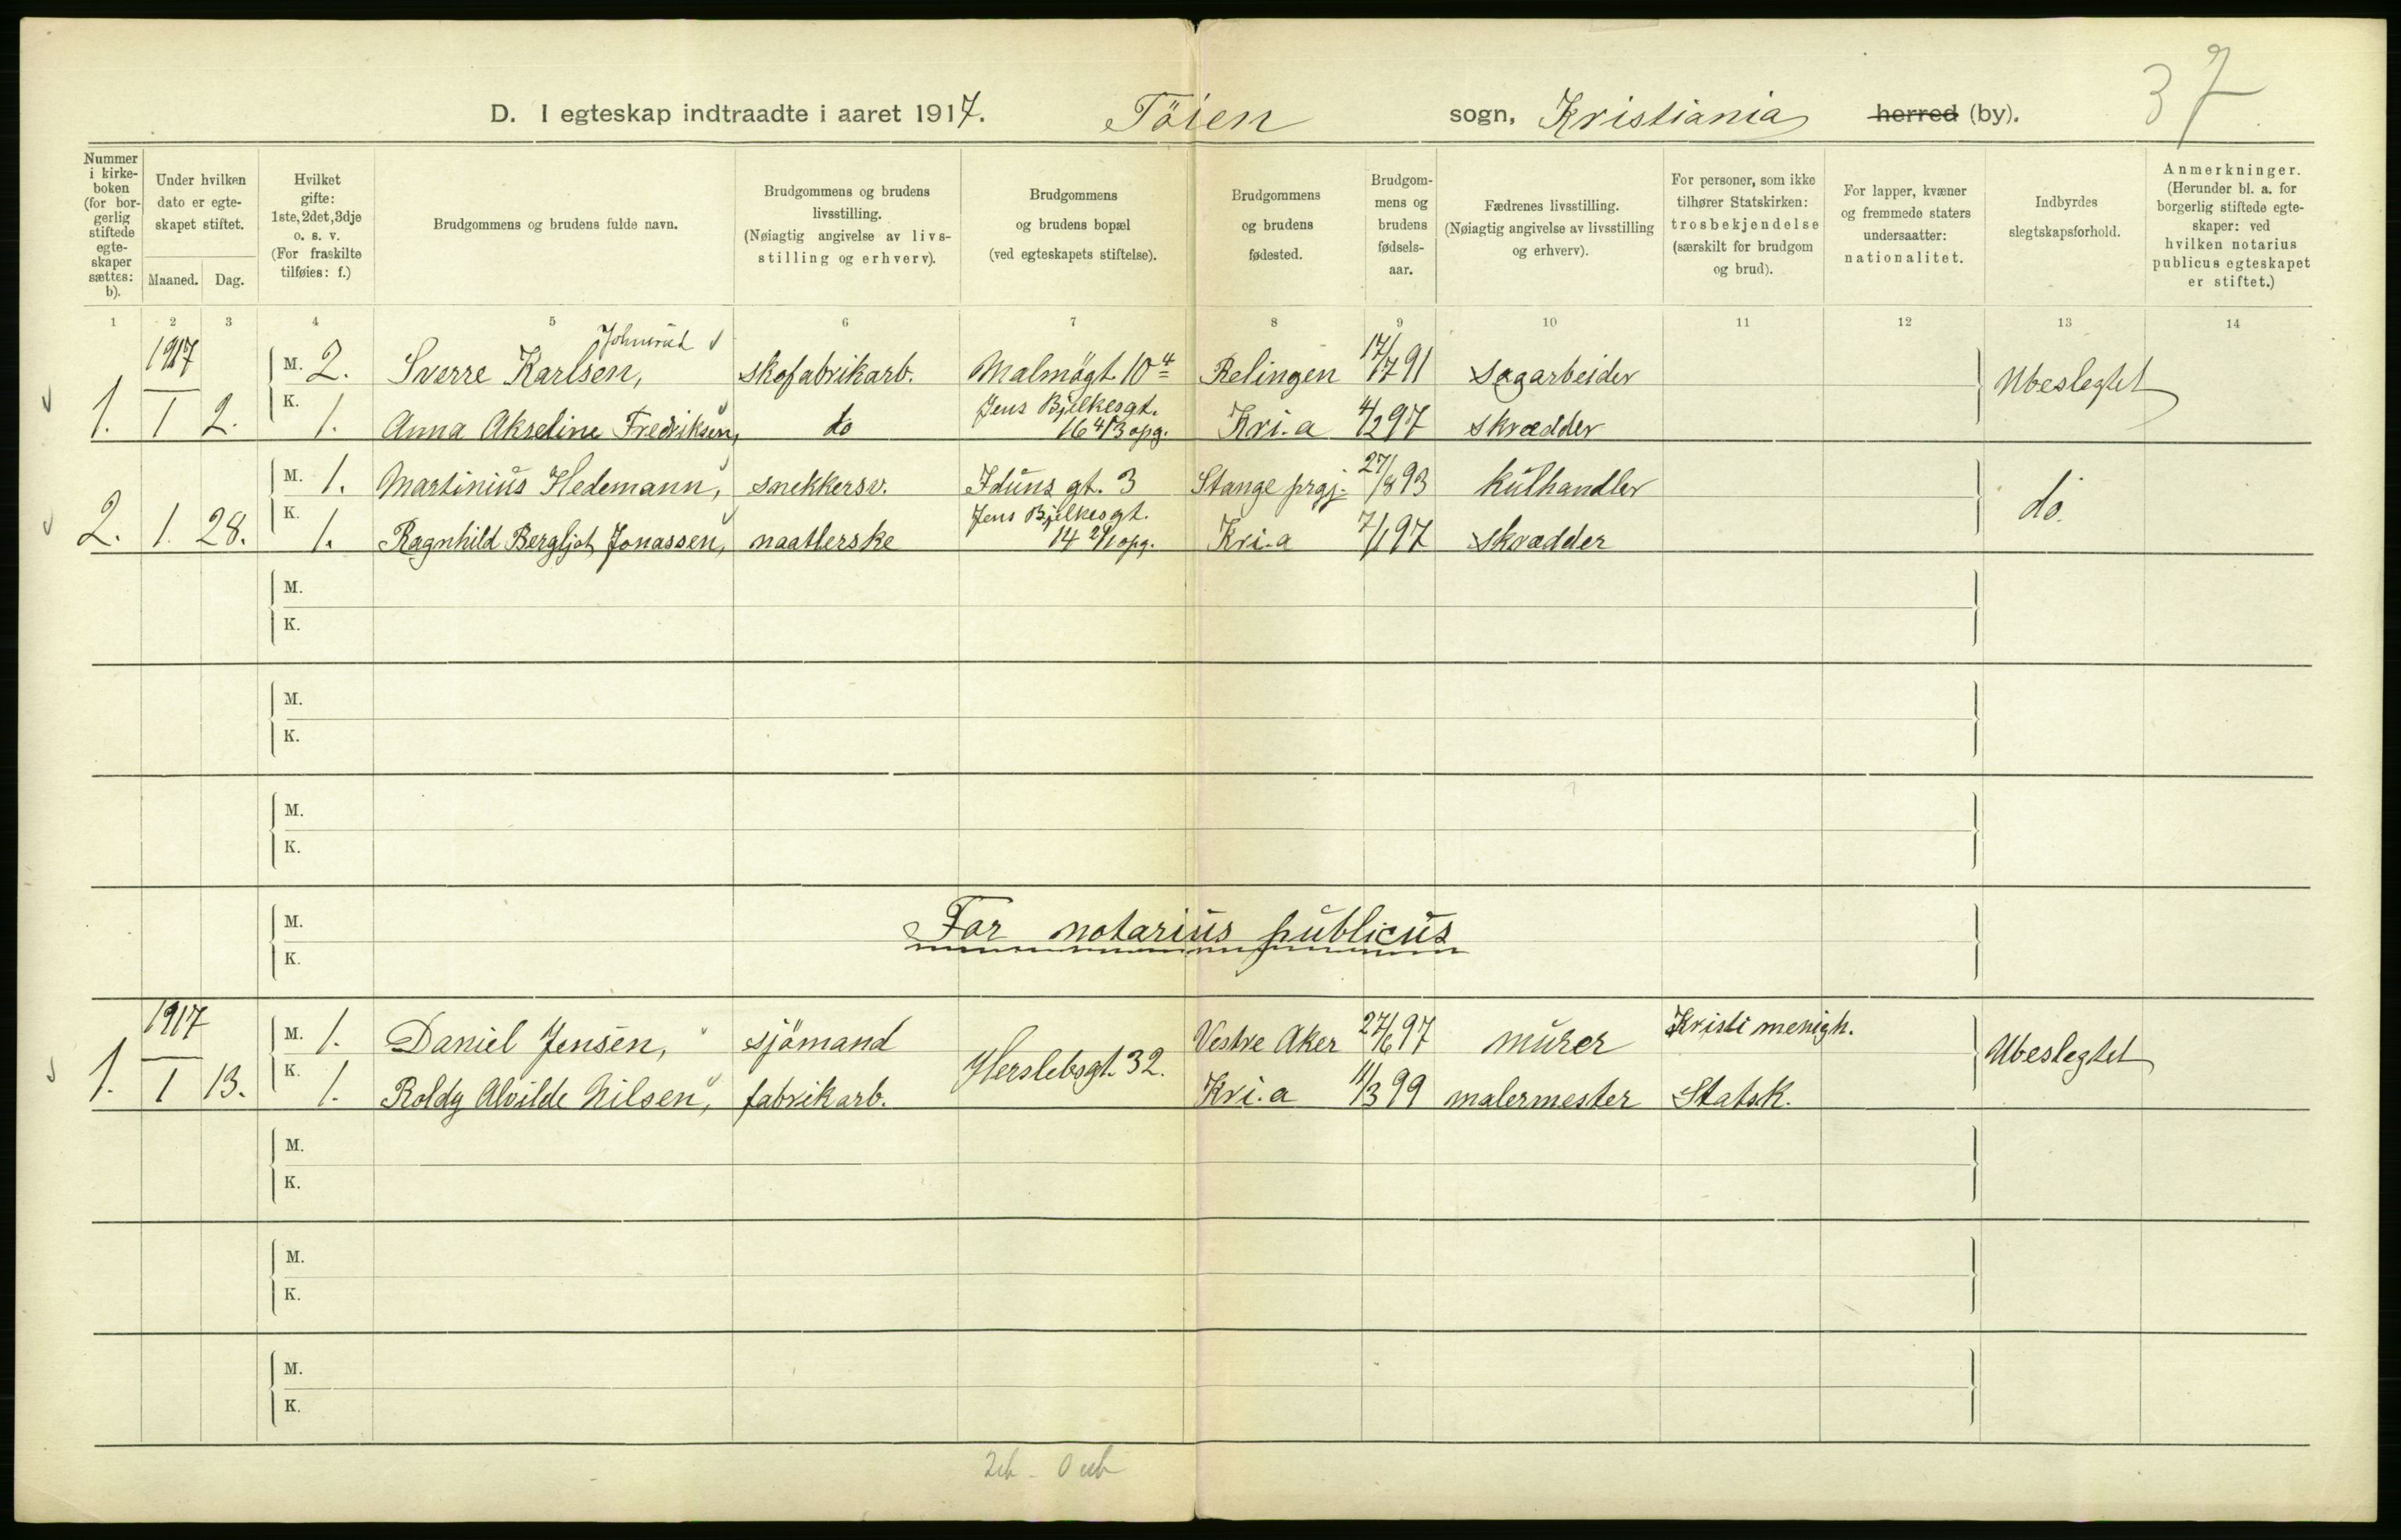 37
D. I egteskap indtraadte i aaret 1917. Töien sogn, Kristiania herred (by).
Nummer i kirke-boken (for bor-gerlig stiftede egte-skaper sættes: b).
Under hvilken dato er egte-skapet stiftet.
Maaned. Dag.
Hvilket gifte: 1ste, 2det, 3dje o. s. v. (For fraskilte tilføies: f.)
Brudgommens og brudens fulde navn.
Brudgommens og brudens livsstilling. (Nøiagtig angivelse av livs-stilling og erhverv).
Brudgommens og brudens bopæl (ved egteskapets stiftelse).
Brudgommens og brudens fødested.
Brudgom-mens og brudens fødsels-aar.
Fædrenes livsstilling. (Nøiagtig angivelse av livsstilling og erhverv).
For personer, som ikke tilhører Statskirken: trosbekjendelse (særskilt for brudgom og brud).
For lapper, kvæner og fremmede staters undersaatter: nationalitet.
Indbyrdes slegtskapsforhold.
Anmerkninger. (Herunder bl. a. for borgerlig stiftede egte-skaper: ved hvilken notarius publicus egteskapet er stiftet.)
1 2 3 4 5 6 7 8 9 10 11 12 13 14
1917 M. 2. Sverre Karlsen, skofabrikarb. Malmögt. 10 4 Relingen 17/7 91 Sagarbeider Ubeslegtet
1. 1 2. K. 1. Anna Akseline Fredriksen, do Jens Bjelkesgt. 16 4/3 opg. Kri.a 4/2 97 skrædder
M. 1. Martinius Hedemann, snekkersv. Iduns gt. 3 Stange prgj. 27/8 93 kulhandler do.
2. 1. 28. K. 1. Ragnhild Bergljot Jonassen, naatlerske Jens Bjelkesgt. 14 2/1 opg. Kri.a 7/1 97 Skrædder
M.
K.
M.
K.
M.
K.
M.
For notarius publicus
K.
1917 M. 1. Daniel Jensen, sjömand Herslebsgt. 32. Vestre Aker 27/6 97 murer Kristi menigh. Ubeslegtet
1. 1 13. K. 1. Roldy Alvilde Nilsen, fabrikarb. Kri.a 11/3 99 malermester Statsk.
M.
K.
M.
K.
M.
K.